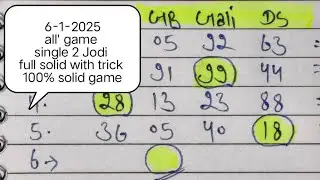 6-1-2025
all' game
single 2 Jodi
full solid with trick
100% solid game
GB Gali DS
05 92 63 =
91 99 44 =
4. 28 13 23 88 =
5. 36 05 40 18
6→